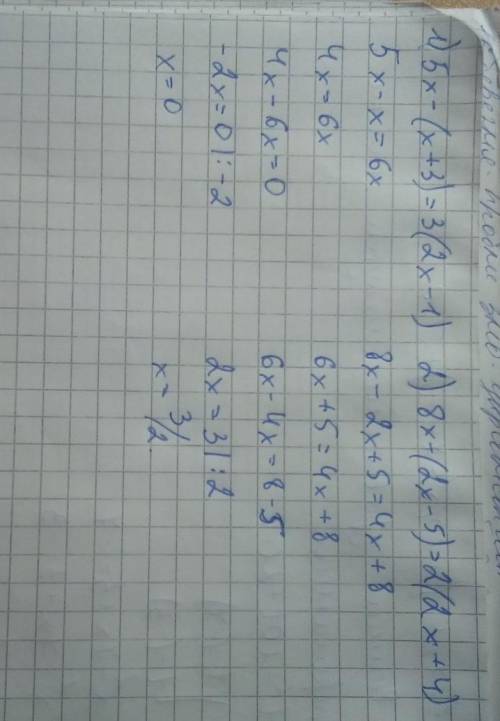 1) 5x-(x+3)=3(2x-1)
5x-x=6x
4x=6x
4x-6x=0
-2x=0|:-2
x=0
2) 8x+(2x-5)=2(2x+4)
8x-2x+5=4x+8
6x+5=4x+8
6x-4x=8-5
2x=3|:2
x=3/2